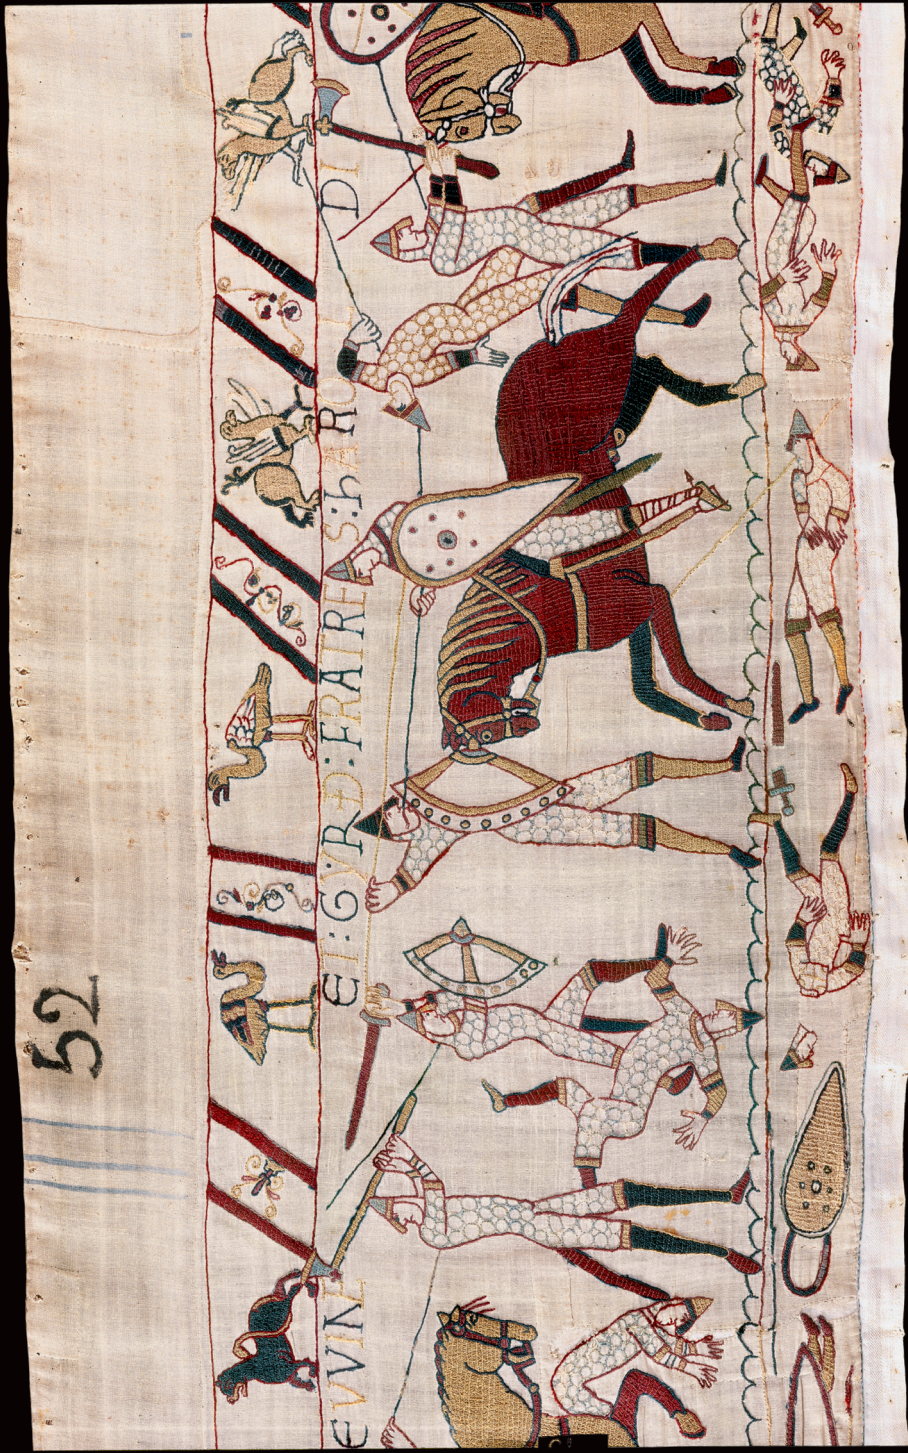 EVVINE ET : GYRÐ : FRATRES : hAROLDI
52